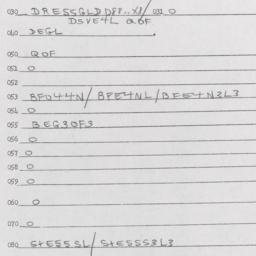 030 DRESSGLD D8P..X8/ 031 0
DSVE4L QOF
040 DEGL
050 QOF
051 0
052
053 BFO44N/ BPE4NL/BFE4N3L3
054 0
055 BEG3OF3
056 0
057 0
058 0
059 0
060 0
070 0
080 S+ESSSL/ S+ESSS3L3